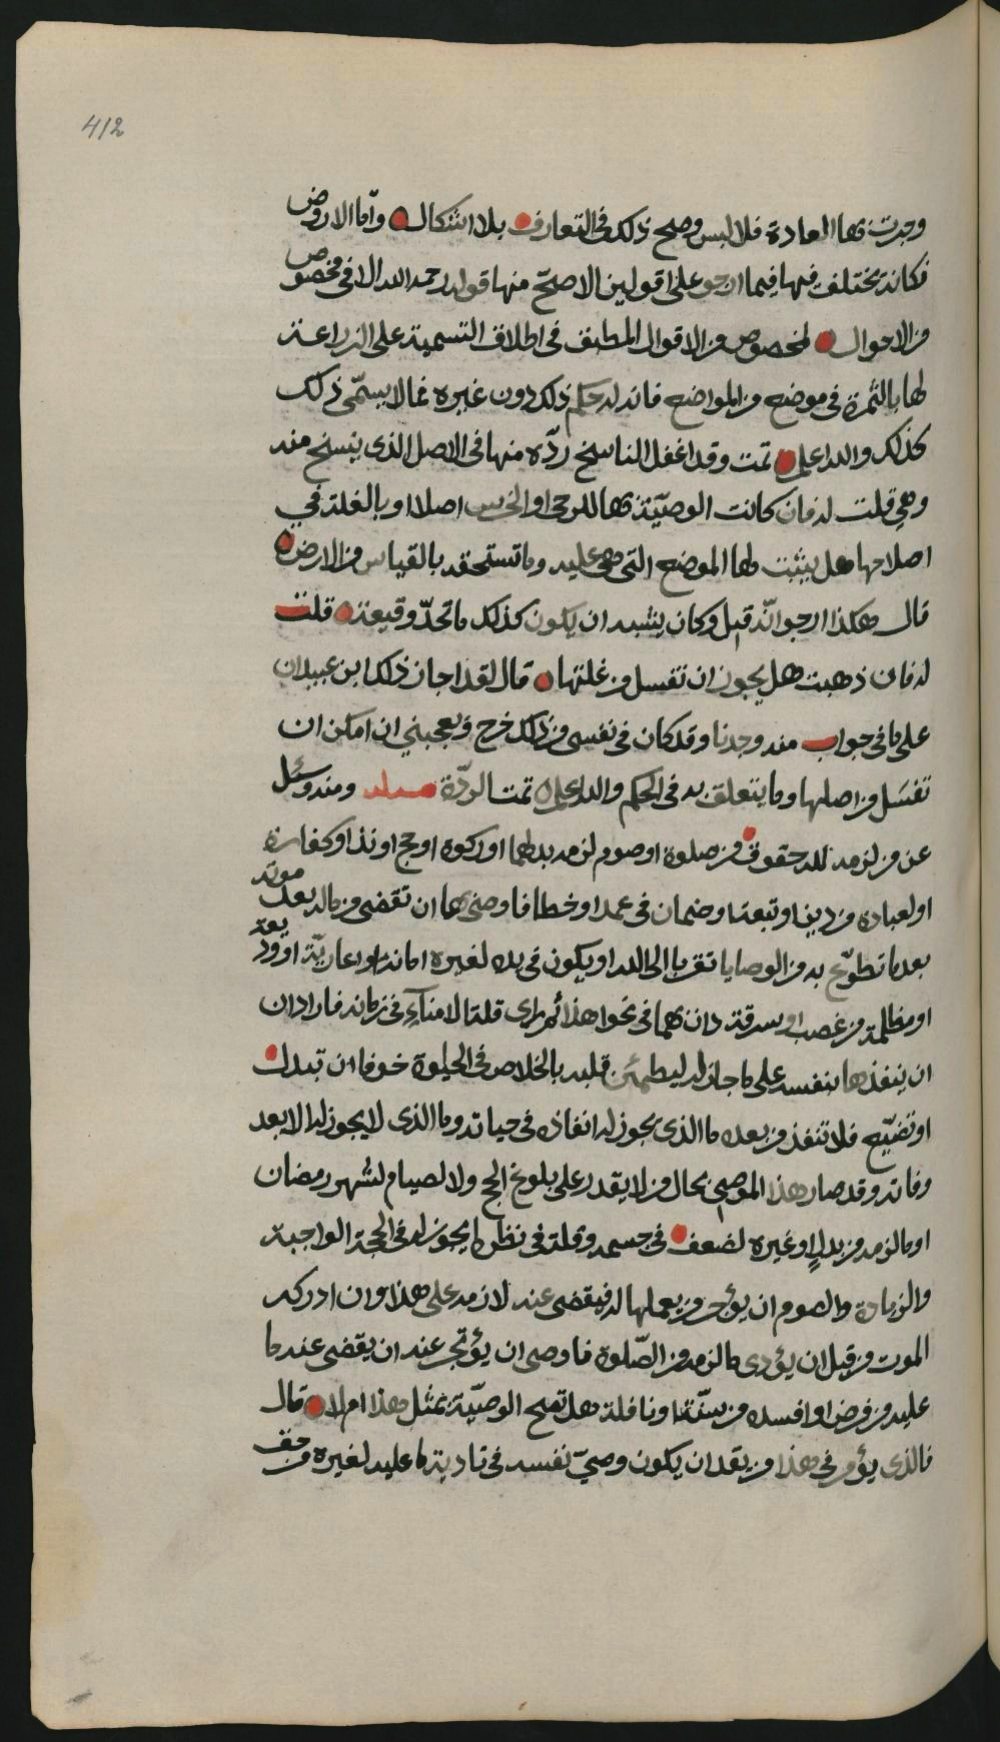 412
وجرت بها العادة فلا لبس وصح ذلك في التعارف بلا اشكال واما الاروض
فكانه يختلف فيها فيما ارجو على اقولين الاصح منها قوله رحمه الله الا في مخصوص
من الاحوال لمخصوص من الاقوال المطبق في اطلاق التسمية على الزراعة
لها بالثمرة في موضع من المواضع فانه له حكم ذلك دون غيره مما لا يسمّى ذلك
كذلك والله اعلم تمت وقد اغفل الناسخ ردّه منها في الاصل الذي ينسخ منه
وهي قلت له فان كانت الوصيّة بها للرحى او اصلا او بالغلة في
اصلاحها هل يثبت لها الموضع التي هي عليه وما تستحقه بالقياس من الارض
قال هكذا ارجوا انّه قيل وكان يشبه ان يكون كذلك ما تحدّ وقيعته قلت
له فان ذهبت هل يجوز ان تفسل من غلتها قال لقد اجاز ذلك ابن عبيدان
على ما في جواب منه وجدنا وقد كان في نفسي من ذلك حرج ويعجبني ان امكن ان
تفسل من اصلها وما يتعلق به في الحكم والله اعلم تمت الردّة مسئلة ومنه وسئل
عن من لزمه لله حقوق من صلوة او صوم لزمه بدلهما او زكوة او حج او نذر او كفارة
او لعباده من دين او تبعة او ضمان في عمد او خطا فاوصى بها ان تقضى من ماله بعد موته
بعد ما تطوّع به من الوصايا تقربا الى الله او يكون في يده لغيره امانة او اعاريّة او وديعة
او مظلمة من غصب او سرقة دان بهما في نحوا هذا ثم راى قلة الامناء في زمانه فاراد ان
ان ينفذها بنفسه على ما جاز له ليطمئن قلبه بالخلاص في الحيوة خوفا ان تبدل
او تضيّع فلا تنفذ من بعده ما الذي يجوز له انفاذه في حياته وما الذي لا يجوز له الا بعد
وفاته وقد صار هذا الموصي بحال من لا يقدر على بلوغ الحج ولا لصيام لشهر رمضان
او ما لزمه من بدل او غيره لضعف في جسمه وقلة في نظره ايجوز له في الحجة الواجبة
والزيادة والصوم ان يؤجر من يعملها له فيقضى عنه لازمه على هذا وان ادركه
الموت من قبل ان يؤدى ما لزمه من الصّلوة فاوصى ان يؤتجر عنه ان يقضى عنه ما
عليه من فرض او افسده من سنّة او نافلة هل تصح الوصيّة بمثل هذا ام لا قال
فالذي يؤمر في هذا من يقدر ان يكون وصيّ نفسه في تادية ما عليه لغيره من حق